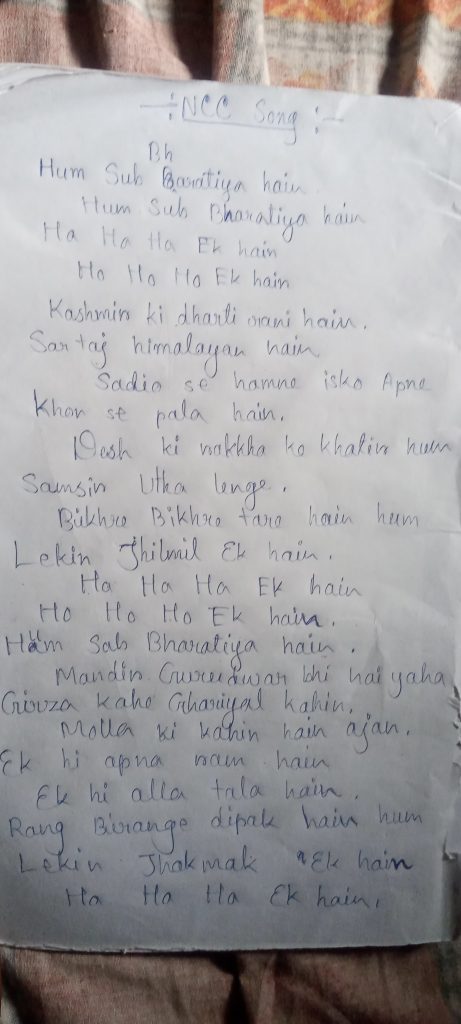 -:NCC Song:-
Bh
Hum Sub Baratiya hain.
Hum Sub Bharatiya hain
Ha Ha Ha Ek hain
Ho Ho Ho Ek hain
Kashmir ki dharti rani hain.
Sartaj himalayan hain,
Sadio se hamne isko Apne
Khon se pala hain.
Desh ki rakkha ke khatir hum
Samsir Utha lenge.
Bikhre Bikhre tare hain hum
Lekin Jhilmil Ek hain.
Ha Ha Ha Ek hain
Ho Ho Ho Ek hain.
Ham Sab Bharatiya hain.
Mandir Gurudwar bhi hai yaha
Girza kahe Ghariyal kahin,
Molla ki kahin hain ajan.
Ek hi apna ram hain
Ek hi alla tala hain.
Rang Birange dipak hain hum
Lekin Jhakmak Ek hain
Ha Ha Ha Ek hain.